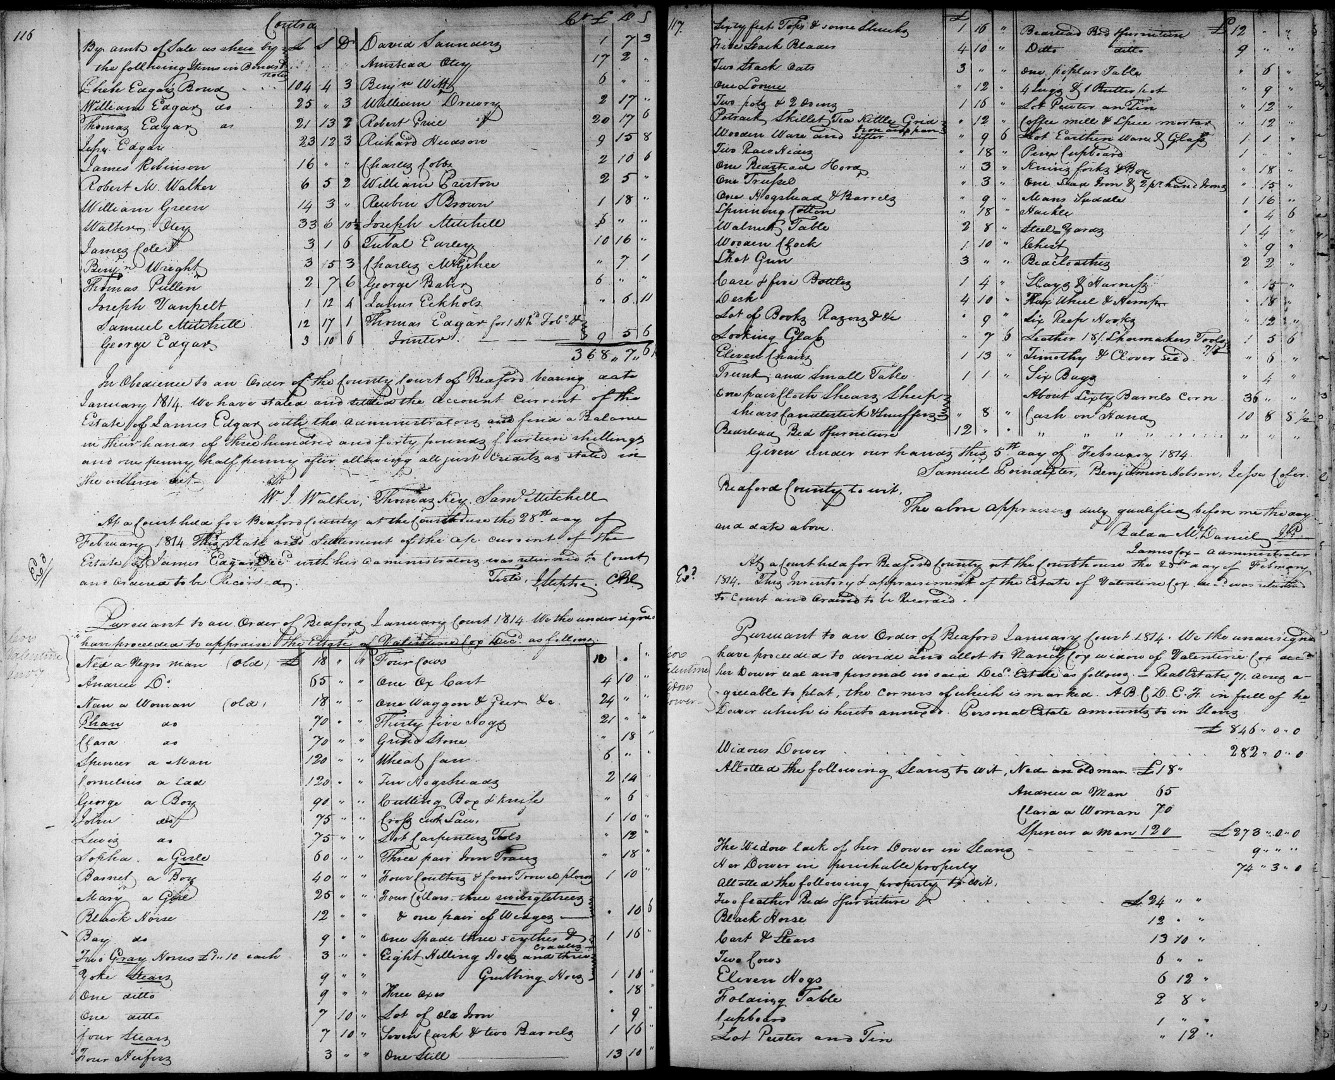 116
Contra Cr £ S D
By amt of Sale as shew by £ S D David Saunders 1 7 3
the following Items in Bonds & notes Armstead Otey 17 2 "
Elisha Edgar Bond 104 4 3 Benjn Witt 6 " "
William Edgar do 25 " 3 William Drewry 2 17 "
Thomas Edgar do 21 13 2 Robert Price 20 17 6
Jesse Edgar 23 12 3 Richard Hudson 9 15 8
James Robinson 16 " " Charles Cobbs 2 10 6
Robert M. Walker 6 5 2 William Preston 2 5 "
William Green 14 3 " Reubin S Brown 1 18 "
Walter Otey 33 6 10½ Joseph Mitchell
James Cole 3 1 6 Tubal Earley 10 16 "
Benjn Wright 3 15 3 Charles McGehee " 7 1
Thomas Pullin 2 7 6 George Baber 6 " "
Joseph Vanpelt 1 12 4 James Eckhols " 6 11
Samuel Mitchell 12 17 1 Thomas Edgar for 1 Hhd Tobo &
George Edgar 3 10 6 9 5 6
368 " 7 " 6
In Obedience to an Order of the County Court of Bedford bearing date
January 1814. We have stated and settled the Account Current of the
Estate of James Edgar with the administrators and find a Balance
in their hands of three hundred and forty pounds fourteen shillings
and one penny half penny after allowing all just Credits as stated in
the within act.
W. J. Walker, Thomas Key, Saml Mitchell
At a Court held for Bedford County at the Courthouse the 28th day of
February 1814 This State and Settlement of the a/c current of the
Estate of James Edgar Decd with his administrators was returned to Court
and ordered to be Recorded.
Teste J Steptoe CBC
Exd
Pursuant to an Order of Bedford January Court 1814 We the undersigned
have proceeded to appraise the Estate of Valentine Cox Decd as follows
Ned a Negro man (old) £ 18 " " Four Cows 12 " "
Andrew Do 65 " " One Ox Cart 4 10 "
Nan a Woman (old) 18 " " One Waggon & Geer &c. 24 " "
Phan do 70 " " Thirty five Hogs 21 " "
Clara do 70 " " Grind Stone " 18 "
Spencer a Man 120 " " Wheat fan 6 " "
Cornelius a Lad 120 " " Ten Hogsheads 2 14 "
George a Boy 90 " " Cutting Box & Knife " 6 "
John do 75 " " Cross cut Saw 1 10 "
Lewis do 75 " " Lot Carpenters Tools " 12 "
Sophia a Girle 60 " " Three pair Iron Traces " 18 "
Barnet a Boy 40 " " Four Coulters & four Trowel plows 1 10 "
Mary a Girle 25 " " Four Collars three swingletrees
Black Horse 12 " " & one pair of Wedges " 10 6
Bay do 9 " " One Spade three scythes & cradles 1 16 "
Two Gray Horses 3 " " Eight Hilling Hoes and three
Yoke Stears 9 " " Grubbing Hoes 1 16 "
One ditto 9 " " Three axes " 18 "
One ditto 7 10 " Lot of old Iron " 9 "
four Stears 7 10 " Seven Cask & two Barrels 1 16 "
Four Heifers 3 " " One Still 13 10 "
117.
Sixty feet Tops & some Shucks 1 16 " Bedstead Bed & furniture £ 12 " "
Five Stack Blades 4 10 " Ditto ditto 9 " "
Two Stack Oats 3 " " One poplar Table " 6 "
One Loome " 12 " 4 Jugs & 1 Butter pot " 9 "
Two pots & 2 Ovens 1 16 " Lot Pewter and Tin " 12 "
Potrack Skillet Tea Kittle Grid Iron and pan " 12 " Coffee mill & Spice mortar " 12 "
Wooden Ware and sifter " 9 6 Lot Earthen Ware & Glass 1 1 "
Two Raw Hides " 18 " Pine Cupboard 1 " "
One Bedstead & Cord " 3 " Knives forks & Box " 18 "
One Trussel " 3 " One Flad Iron & 2 pr hand Irons " 15 "
One Hogshead & Barrels " 9 " Mans Saddle 1 16 "
Spinning Cotton " 18 " Hackle " 4 6
Walnut Table 2 8 " Steel yards 1 4 "
Wooden Clock 1 10 " Chest " 9 "
Shot Gun 3 " " Bedclothes 2 2 "
Case & five Bottles 1 4 " Slays & Harness " 15 "
Desk 4 10 " Flax Wheel & Hemp " 18 "
Lot of Books Razors &c " 9 " Six Reap Hooks " 12 "
Looking Glass " 7 6 Leather 18/ Shoemakers Tools 7/6 1 5 6
Eleven Chairs 1 13 " Timothy & Clover seed " 6 "
Trunk and Small Table 1 1 " Six Bags " 4 "
One pair Cloth Shears Sheep About Sixty Barrels Corn 36 " "
shears Candlestick & Snuffers " 8 " Cash on Hand 10 8 8½
Bedstead Bed & furniture 12 " "
Given under our hands this 5th day of February 1814.
Samuel Poindexter, Benjamin Hobson, Jesse Cofer.
Bedford County to wit,
The above appraisers duly qualified before me the day
and date above.
Balda McDaniel JP
James Cox administrator
At a Court held for Bedford County at the Courthouse the 28th day of February
Exd 1814. This Inventory & appraisement of the Estate of Valentine Cox decd was returned
to Court and Ordered to be Recorded.
Pursuant to an Order of Bedford January Court 1814. We the undersigned
have proceeded to divide and allot to Nancy Cox widow of Valentine Cox decd
her Dower real and personal in said Decd Estate as follows. Real Estate 71 acres a-
greeable to plat, the corners of which is marked A B C D E F. in full of her
Dower which is hereto annexed. Personal Estate amounts to in Slaves
£ 846 " 0 " 0
Widows Dower 282 " 0 " 0
Allotted the following Slaves to wit, Ned an old man £18 "
Andrew a Man 65
Clara a Woman 70
Spencer a Man 120 £273 " 0 " 0
The Widow lack of her Dower in Slaves 9 " " "
Her Dower in perishable property 74 " 3 " 0
Allotted the following property to wit,
Two feather Beds & furniture £24 " "
Black Horse 12 " "
Cart & Stears 13 10 "
Two Cows 6 " "
Eleven Hogs 6 12 "
Folding Table 2 8 "
Cupboard 1 " "
Lot Pewter and Tin " 12 "